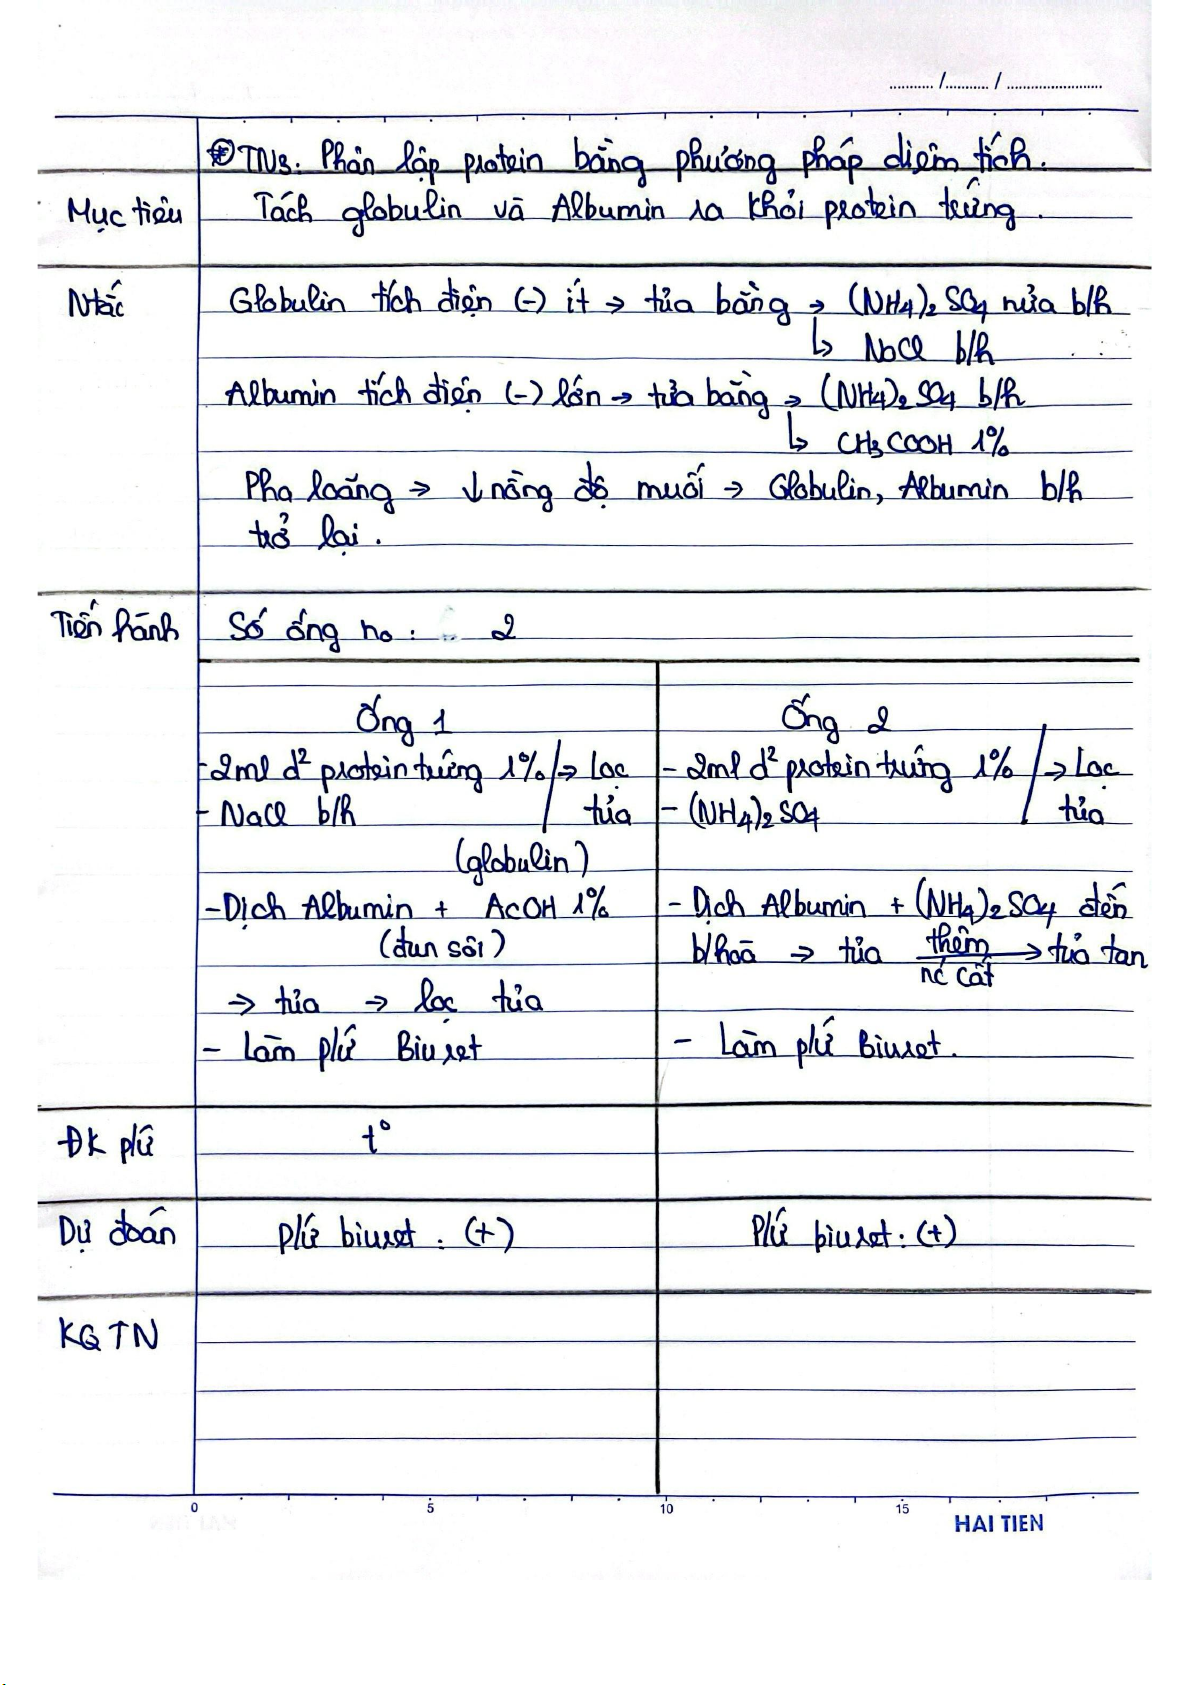 ............ /............ / ..........................
⊛ TN3. Phân lập protein bằng phương pháp diêm tích.
Mục tiêu Tách globulin và Albumin ra khỏi protein trứng.
Ntắc Globulin tích điện (-) ít → tủa bằng → (NH4)2SO4 nửa b/h
↳ NaCl b/h
Albumin tích điện (-) lớn → tủa bằng → (NH4)2SO4 b/h
↳ CH3COOH 1%
Pha loãng → ↓ nồng độ muối → Globulin, Albumin b/h
trở lại.
Tiến hành Số ống no : 2
Ống 1 Ống 2
- 2ml d² protein trứng 1% / → Lọc - 2ml d² protein trứng 1% / → Lọc
- NaCl b/h tủa - (NH4)2SO4 tủa
(globulin)
- Dịch Albumin + AcOH 1% - Dịch Albumin + (NH4)2SO4 đến
(đun sôi) b/hoà → tủa thêm → tủa tan
nc cất
→ tủa → lọc tủa
- Làm p/ứ Biuret - Làm p/ứ Biuret.
ĐK p/ứ t°
Dự đoán P/ứ biuret : (+) P/ứ biuret : (+)
KQ TN
0 5 10 15
HAI TIEN